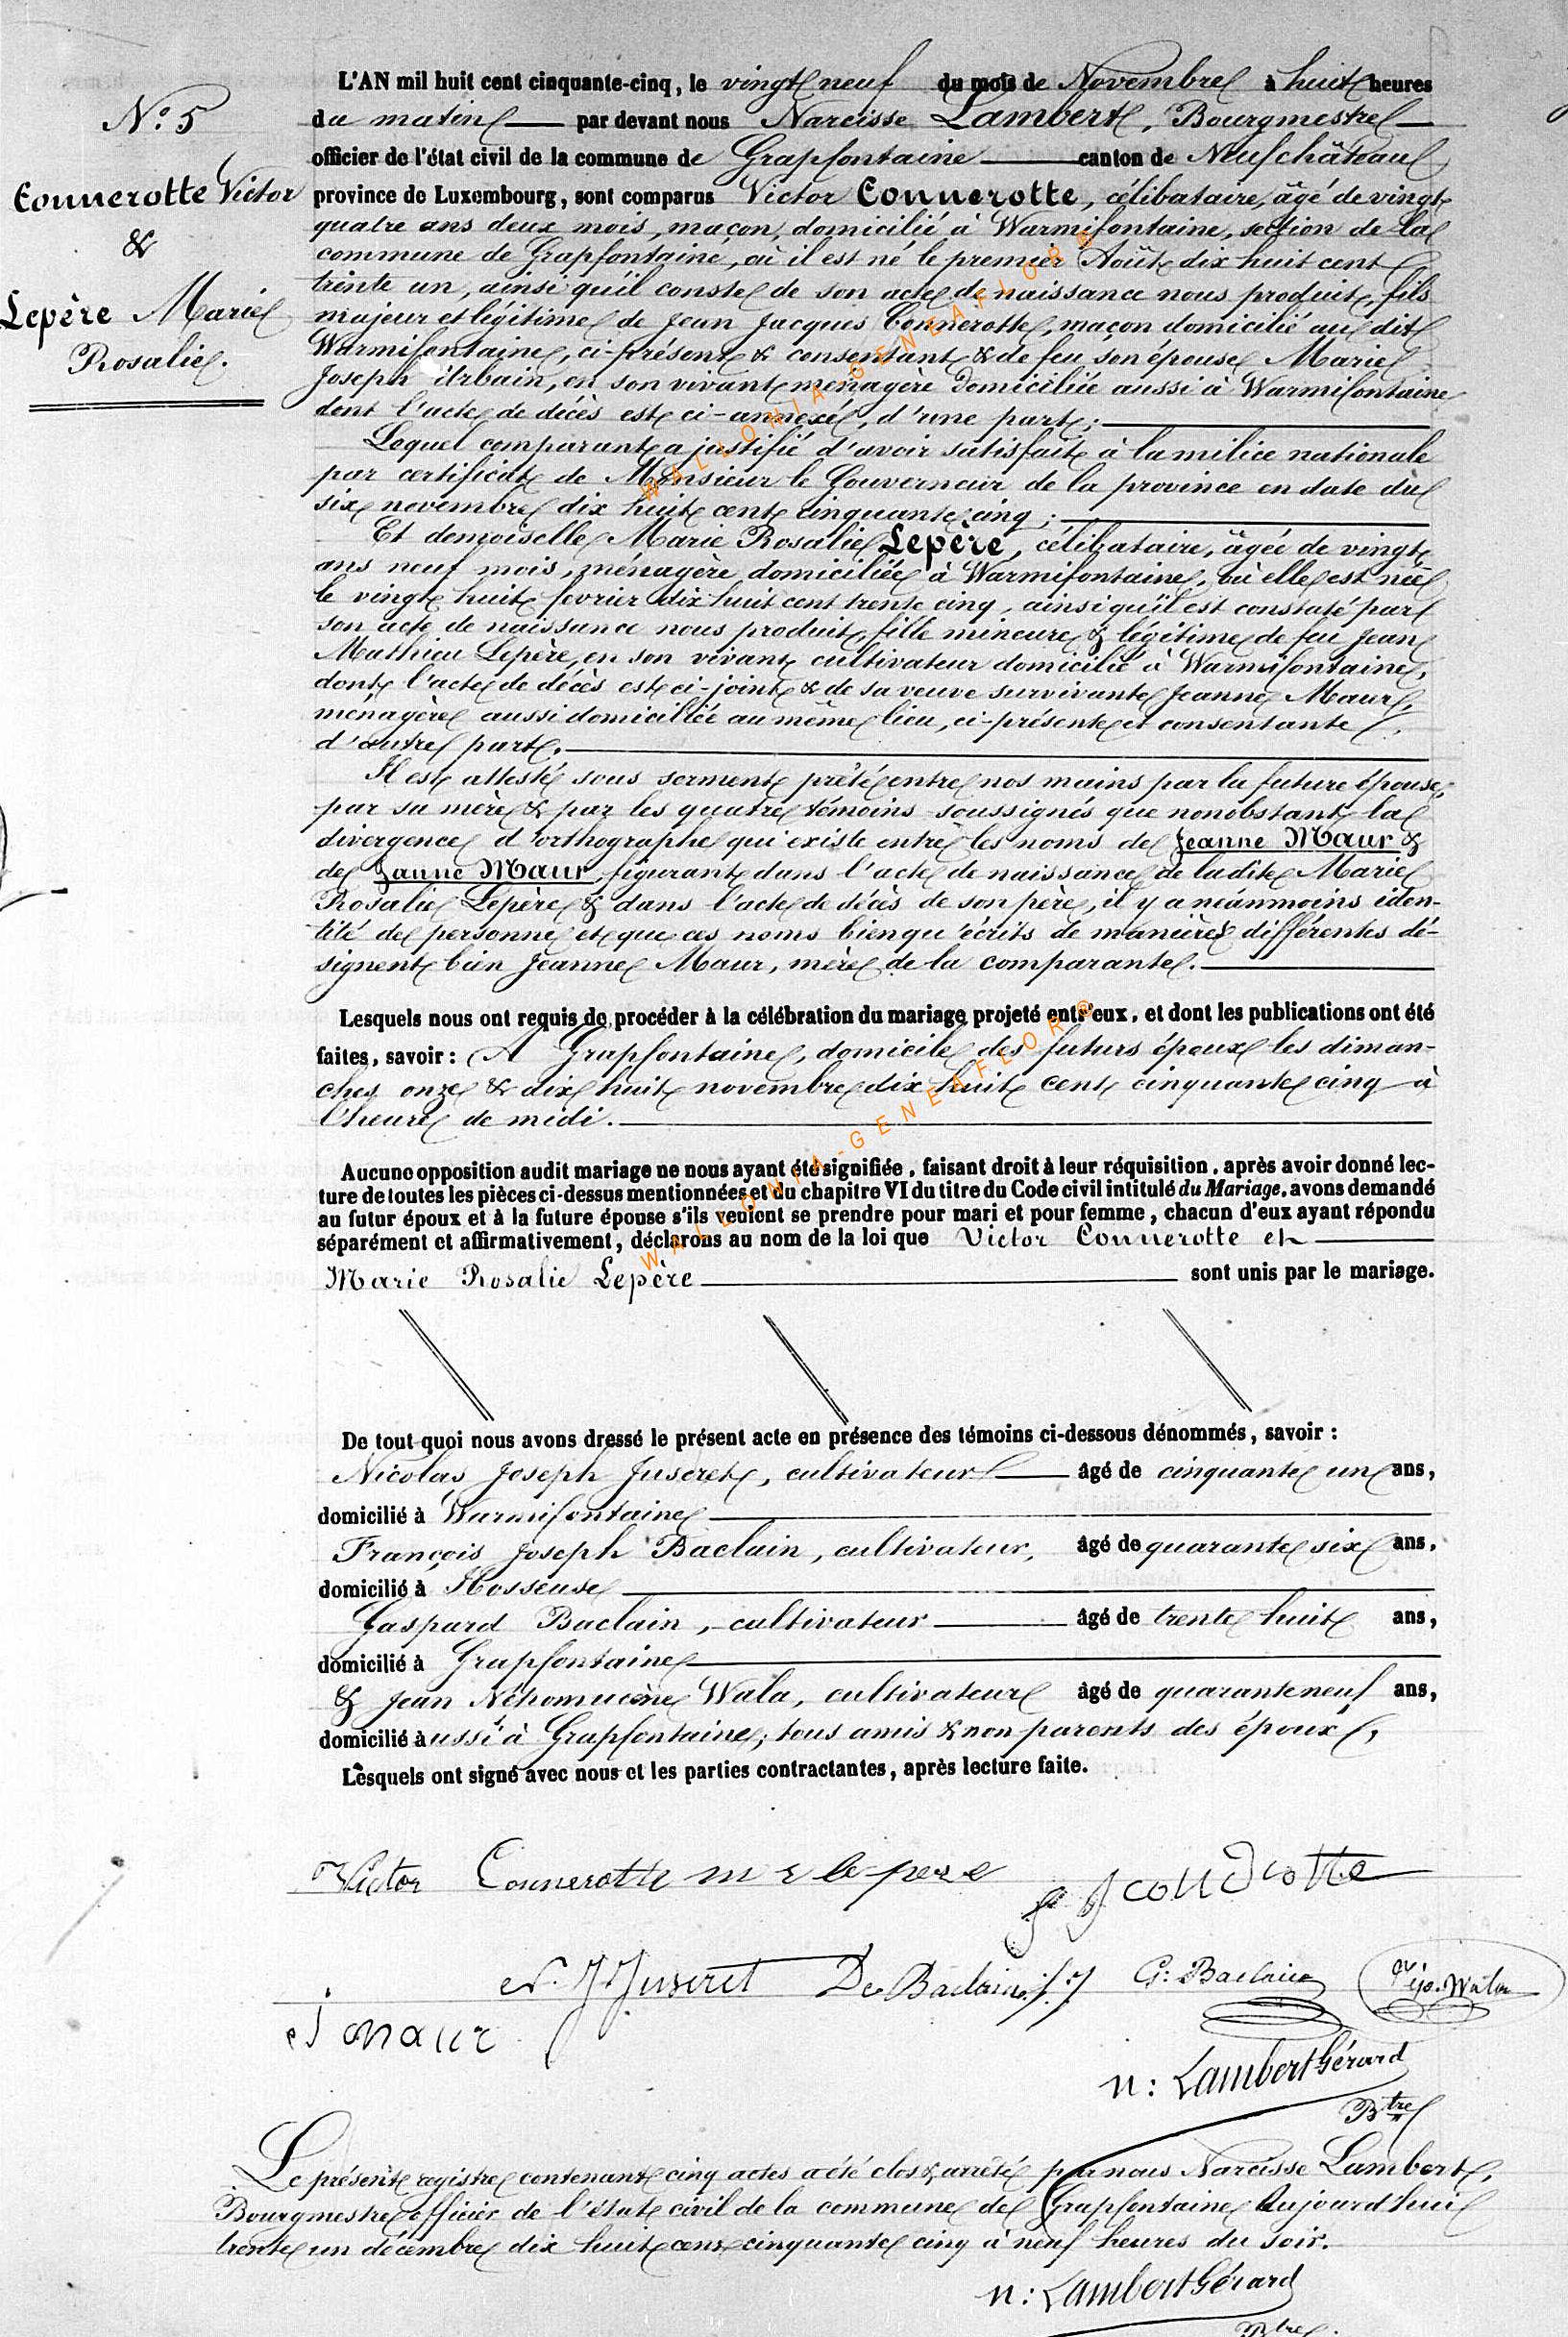 N.o 5
Connerotte Victor
&
Lepère Marie
Rosalie.
L'AN mil huit cent cinquante-cinq, le vingt neuf du mois de Novembre à huit heures
du matin par devant nous Narcisse Lambert, Bourgmestre
officier de l'état civil de la commune de Grapfontaine canton de Neufchâteau
province de Luxembourg, sont comparus Victor Connerotte, célibataire, âgé de vingt
quatre ans deux mois, maçon, domicilié à Warmifontaine, section de la
commune de Grapfontaine, où il est né le premier Août dix huit cent
trente un, ainsi qu'il conste de son acte de naissance nous produit, fils
majeur et légitime de Jean Jacques Connerotte, maçon domicilié au dit
Warmifontaine, ci-présent & consentant & de feu son épouse Marie
Joseph Urbain, en son vivant ménagère domiciliée aussi à Warmifontaine
dont l'acte de décès est ci-annexé, d'une part;
Lequel comparant a justifié d'avoir satisfait à la milice nationale
par certificat de Monsieur le Gouverneur de la province en date du
six novembre dix huit cent cinquante cinq;
Et demoiselle Marie Rosalie Lepère, célibataire, âgée de vingt
ans neuf mois, ménagère domiciliée à Warmifontaine, où elle est née
le vingt huit fevrier dix huit cent trente cinq, ainsi qu'il est constaté par
son acte de naissance nous produit, fille mineure & légitime de feu Jean
Mathieu Lepère, en son vivant cultivateur domicilié à Warmifontaine,
dont l'acte de décès est ci-joint & de sa veuve survivante Jeanne Maur,
ménagère aussi domiciliée au même lieu, ci-présente et consentante
d'autre part.
Il est attesté sous serment prêté entre nos mains par la future épouse,
par sa mère & par les quatre témoins soussignés que nonobstant la
divergence d'orthographe qui existe entre les noms de Jeanne Maur &
de Janne Maur, figurant dans l'acte de naissance de ladite Marie
Rosalie Lepère & dans l'acte de décès de son père, il y a néanmoins iden-
tité de personne et que ces noms bien qu'écrits de manières différentes dé-
signent bien Jeanne Maur, mère de la comparante.
Lesquels nous ont requis de procéder à la célébration du mariage projeté entr'eux, et dont les publications ont été
faites, savoir: A Grapfontaine, domicile des futurs époux les diman-
ches onze & dix huit novembre dix huit cent cinquante cinq à
l'heure de midi.
Aucune opposition audit mariage ne nous ayant été signifiée, faisant droit à leur réquisition, après avoir donné lec-
ture de toutes les pièces ci-dessus mentionnées et du chapitre VI du titre du Code civil intitulé du Mariage, avons demandé
au futur époux et à la future épouse s'ils veulent se prendre pour mari et pour femme, chacun d'eux ayant répondu
séparément et affirmativement, déclarons au nom de la loi que Victor Connerotte et
Marie Rosalie Lepère sont unis par le mariage.
De tout quoi nous avons dressé le présent acte en présence des témoins ci-dessous dénommés, savoir:
Nicolas Joseph Juseret, cultivateur âgé de cinquante un ans,
domicilié à Warmifontaine
François Joseph Baclain, cultivateur, âgé de quarante six ans,
domicilié à Hosseuse
Gaspard Baclain, cultivateur âgé de trente huit ans,
domicilié à Grapfontaine
& Jean Népomucène Wala, cultivateur âgé de quarante neuf ans,
domicilié aussi à Grapfontaine; tous amis & non parents des époux,
Lesquels ont signé avec nous et les parties contractantes, après lecture faite.
Victor Connerotte m r lepere
N. J. Juseret De Baclain f. J G: Baclain Wala
J maur
N: Lambert Gérard
Btre
Le présent registre contenant cinq actes a été clos & arrêté par nous Narcisse Lambert,
Bourgmestre officier de l'état civil de la commune de Grapfontaine Aujourd'hui
trente un décembre dix huit cent cinquante cinq à neuf heures du soir.
N: Lambert Gérard
Btre.
WALLONIA-GENEAFLOR®
WALLONIA-GENEAFLOR®